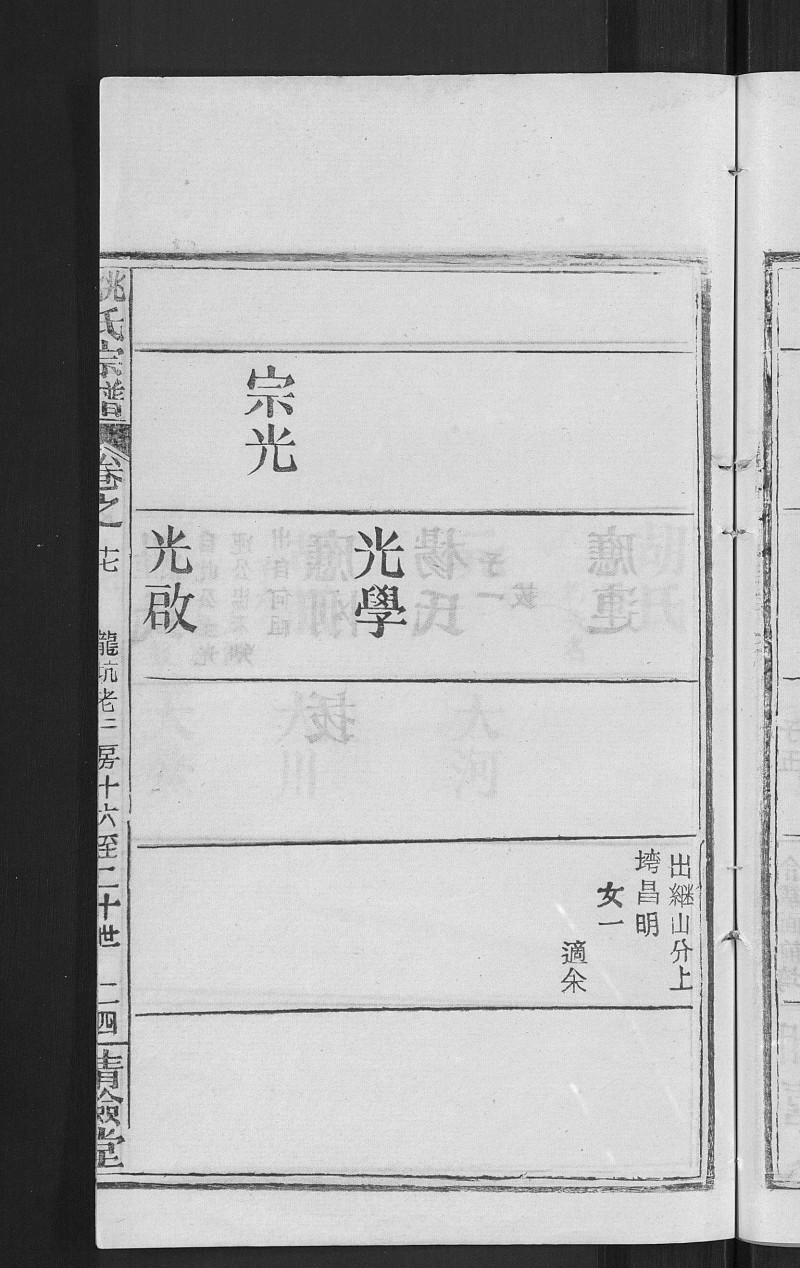 宗光
光學
光啟
出継山分上
塆昌明
女一
適余
姚氏宗譜
卷之
十七
龍坑老二房十六至二十世
二四
清儉堂